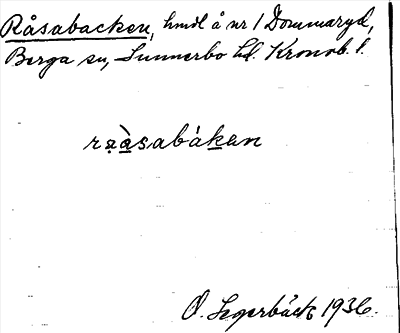 Råsabacken, hmdl å nr 1 Dommaryd,
Berga sn, Sunnerbo hd. Kronob. l.
rạạ̀sabákan
O. Segerbäck 1936.